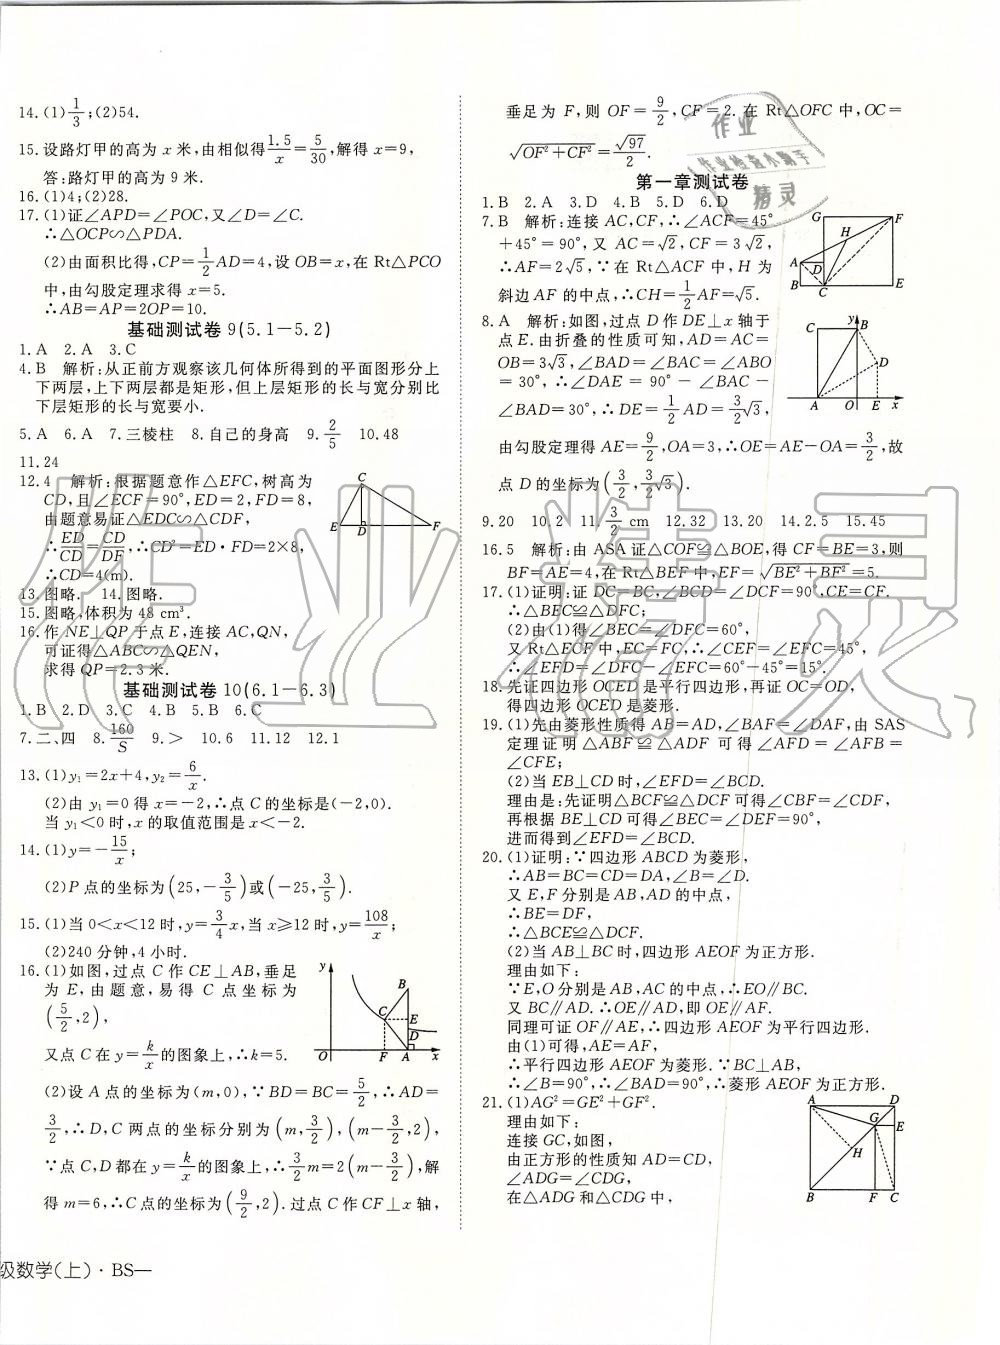 14.(1)1/3;(2)54.
15.设路灯甲的高为 x 米,由相似得1.5/x=5/30,解得 x=9,
答:路灯甲的高为 9 米.
16.(1)4;(2)28.
17.(1)证∠APD=∠POC,又∠D=∠C.
∴△OCP∽△PDA.
(2)由面积比得,CP=1/2AD=4,设 OB=x,在 Rt△PCO
中,由勾股定理求得 x=5.
∴AB=AP=2OP=10.
基础测试卷 9(5.1—5.2)
1.A 2.A 3.C
4.B 解析:从正前方观察该几何体所得到的平面图形分上
下两层,上下两层都是矩形,但上层矩形的长与宽分别比
下层矩形的长与宽要小.
5.A 6.A 7.三棱柱 8.自己的身高 9.2/5 10.48
11.24
12.4 解析:根据题意作△EFC,树高为
CD,且∠ECF=90°,ED=2,FD=8,
由题意易证△EDC∽△CDF,
∴ED/CD=CD/DF,∴CD²=ED·FD=2×8,
∴CD=4(m).
C
E D F
13.图略. 14.图略.
15.图略,体积为 48 cm³.
16.作 NE⊥QP 于点 E,连接 AC,QN,
可证得△ABC∽△QEN,
求得 QP=2.3 米.
基础测试卷 10(6.1—6.3)
1.B 2.D 3.C 4.B 5.B 6.C
7.二、四 8.160/S 9.> 10.6 11.12 12.1
13.(1)y₁=2x+4,y₂=6/x.
(2)由 y₁=0 得 x=-2,∴点 C 的坐标是(-2,0).
当 y₁<0 时,x 的取值范围是 x<-2.
14.(1)y=-15/x;
(2)P 点的坐标为(25,-3/5)或(-25,3/5).
15.(1)当 0<x<12 时,y=3/4x,当 x≥12 时,y=108/x;
(2)240 分钟,4 小时.
16.(1)如图,过点 C 作 CE⊥AB,垂足
为 E,由题意,易得 C 点坐标为
(5/2,2),
又点 C 在 y=k/x的图象上,∴k=5.
y
B
C E
D
O F A x
(2)设 A 点的坐标为(m,0),∵BD=BC=5/2,∴AD=
3/2,∴D,C 两点的坐标分别为(m,3/2),(m-3/2,2),
∵点 C,D 都在 y=k/x的图象上,∴3/2m=2(m-3/2),解
得 m=6,∴C 点的坐标为(9/2,2).过点 C 作 CF⊥x 轴,
级数学(上)·BS—
垂足为 F,则 OF=9/2,CF=2.在 Rt△OFC 中,OC=
√(OF²+CF²)=√97/2.
第一章测试卷
1.B 2.A 3.D 4.C 5.D 6.D
7.B 解析:连接 AC,CF,∴∠ACF=45°
+45°=90°,又 AC=√2,CF=3√2,
∴AF=2√5,∵在 Rt△ACF 中,H 为
斜边 AF 的中点,∴CH=1/2AF=√5.
G F
H
A D
B C E
8.A 解析:如图,过点 D 作 DE⊥x 轴于
点 E.由折叠的性质可知,AD=AC=
OB=3√3,∠BAD=∠BAC=∠ABO
=30°,∴∠DAE=90°-∠BAC-
∠BAD=30°,∴DE=1/2AD=3/2√3,
由勾股定理得 AE=9/2,OA=3,∴OE=AE-OA=3/2,故
点 D 的坐标为(3/2,3/2√3).
y
C B
D
A O E x
9.20 10.2 11.3/2 cm 12.32 13.20 14.2.5 15.45
16.5 解析:由 ASA 证△COF≌△BOE,得 CF=BE=3,则
BF=AE=4,在 Rt△BEF 中,EF=√(BE²+BF²)=5.
17.(1)证明:证 DC=BC,∠BCD=∠DCF=90°,CE=CF.
∴△BEC≌△DFC;
(2)由(1)得∠BEC=∠DFC=60°,
又 Rt△ECF 中,EC=FC,∴∠CEF=∠CFE=45°,
∴∠EFD=∠DFC-∠EFC=60°-45°=15°.
18.先证四边形 OCED 是平行四边形,再证 OC=OD,
得四边形 OCED 是菱形.
19.(1)先由菱形性质得 AB=AD,∠BAF=∠DAF,由 SAS
定理证明△ABF≌△ADF 可得∠AFD=∠AFB=
∠CFE;
(2)当 EB⊥CD 时,∠EFD=∠BCD.
理由是:先证明△BCF≌△DCF 可得∠CBF=∠CDF,
再根据 BE⊥CD 可得∠BEC=∠DEF=90°,
进而得到∠EFD=∠BCD.
20.(1)证明:∵四边形 ABCD 为菱形,
∴AB=BC=CD=DA,∠B=∠D.
又 E,F 分别是 AB,AD 的中点,
∴BE=DF,
∴△BCE≌△DCF.
(2)当 AB⊥BC 时,四边形 AEOF 为正方形.
理由如下:
∵E,O 分别是 AB,AC 的中点,∴EO∥BC.
又 BC∥AD.∴OE∥AD,即 OE∥AF.
同理可证 OF∥AE,∴四边形 AEOF 为平行四边形.
由(1)可得,AE=AF,
∴平行四边形 AEOF 为菱形.∵BC⊥AB,
∴∠B=90°,∴∠BAD=90°,∴菱形 AEOF 为正方形.
21.(1)AG²=GE²+GF².
理由如下:
连接 GC,如图,
由正方形的性质知 AD=CD,
∠ADG=∠CDG,
在△ADG 和△CDG 中,
A D
G E
H
B F C
作业
作业检查小帮手
精灵
作业精灵